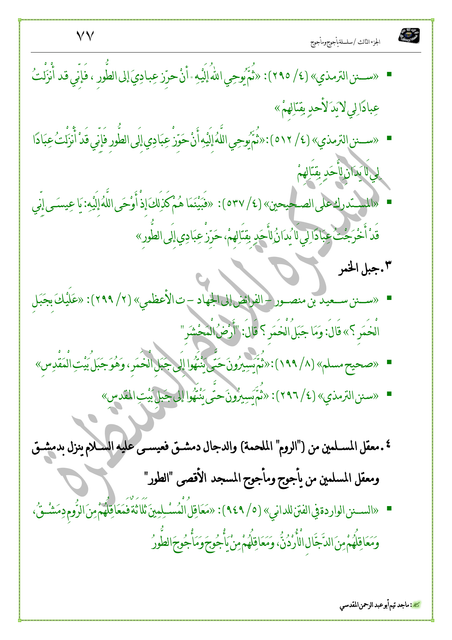 الجزء الثالث / سلسلة يأجوج ومأجوج
٧٧
▪ «سـنن الترمذي» (٤/ ٢٩٥): «ثُمَّ يُوحِي اللهُ إِلَيْهِ ـ أَنْ حَرِّز عِبادِيَ إلى الطُّورِ ، فَإِنِّي قد أَنْزَلْتُ
عِبادًا لِي لا يَدَ لأحدٍ بِقتَالِهِمْ »
▪ «سـنن الترمذي» (٤/ ٥١٢): «ثُمَّ يُوحِي اللَّهُ إِلَيْهِ أَنْ حَوِّزْ عِبَادِي إِلَى الطُّورِ فَإِنِّي قَدْ أَنْزَلْتُ عِبَادًا
لِي لَا يَدَانِ لِأَحَدٍ بِقِتَالِهِمْ
▪ «المسـتدرك على الصحيحين» (٤/ ٥٣٧): «فَبَيْنَمَا هُمْ كَذَلِكَ إِذْ أَوْحَى اللَّهُ إِلَيْهِ: يَا عِيسَى إِنِّي
قَدْ أَخْرَجْتُ عِبَادًا لِي لَا يُدَانُ لِأَحَدٍ بِقِتَالِهِمْ، حَرِّزْ عِبَادِي إِلَى الطُّورِ»
٣. جبل الخمر
▪ «سـنن سـعيد بن منصـور – الفرائض إلى الجهاد – ت الأعظمي» (٢/ ٢٩٩): «عَلَيْكَ بِجَبَلِ
الْخَمَرِ؟» قَالَ: وَمَا جَبَلُ الْخَمَرِ؟ قَالَ: "أَرْضُ الْمَحْشَرِ"
▪ «صحيح مسلم» (٨/ ١٩٩): «ثُمَّ يَسِيرُونَ حَتَّى يَنْتَهُوا إِلَى جَبَلِ الْخَمَرِ، وَهُوَ جَبَلُ بَيْتِ الْمَقْدِسِ»
▪ «سنن الترمذي» (٤/ ٢٩٦): «ثُمَّ يَسِيْرُونَ حَتَّى يَنْتَهُوا إلى جَبَلِ بَيْتِ المَقْدِسِ»
٤. معقل المسـلمين من ("الروم" الملحمة) والدجال دمشـق فعيسـى عليه السـلام ينزل بدمشـق
ومعقل المسلمين من يأجوج ومأجوج المسجد الأقصى "الطور"
▪ «السـنن الواردة في الفتن للداني» (٥/ ٩٤٩): «مَعَاقِلُ الْمُسْـلِمِينَ ثَلَاثَةٌ فَمَعَاقِلُهُمْ مِنَ الرُّومِ دِمَشْـقُ،
وَمَعَاقِلُهُمْ مِنَ الدَّجَّالِ الْأُرْدُنُّ، وَمَعَاقِلُهُمْ مِنْ يَأْجُوجَ وَمَأْجُوجَ الطُّورُ
التذكرة للأيام المنتظرة
: ماجد تيم أبو عبد الرحمن المقدسي